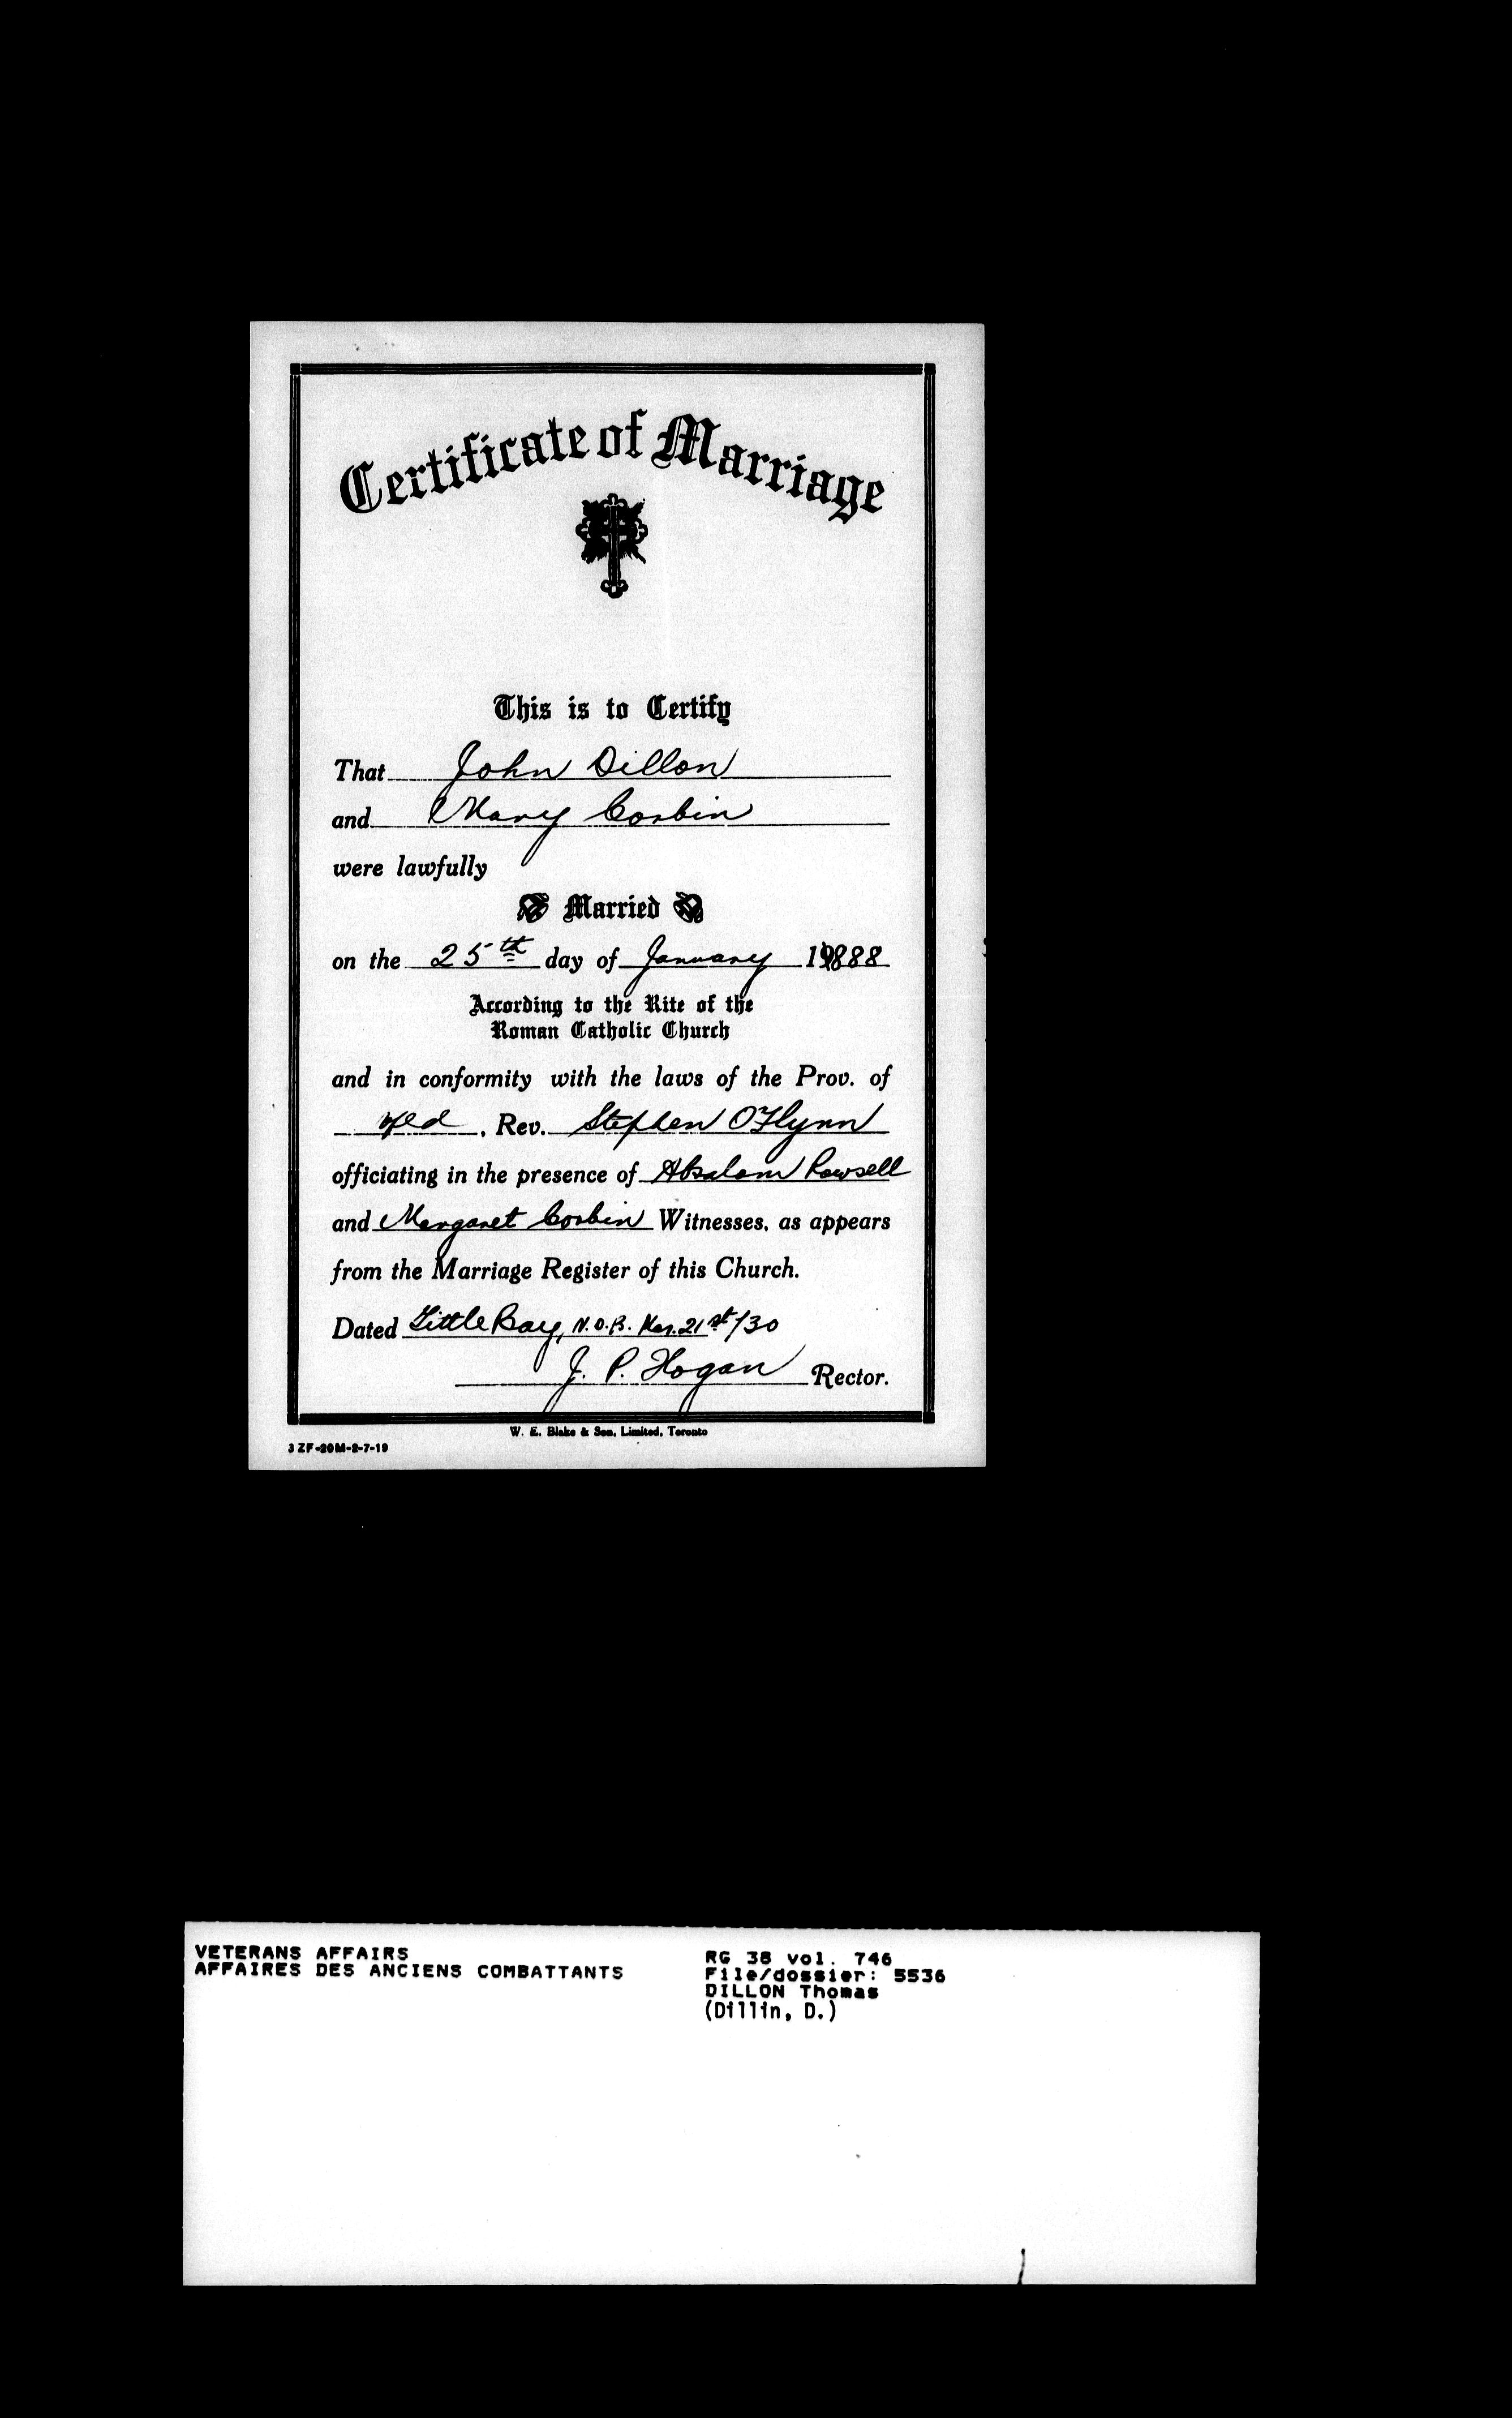 Certificate of Marriage
This is to Certify
That John Dillon
and Mary Corbin
were lawfully
Married
on the 25th day of January 1888
According to the Rite of the
Roman Catholic Church
and in conformity with the laws of the Prov. of
Nfld, Rev. Stephen O'Flynn
officiating in the presence of Absalom Rowsell
and Margaret Corbin Witnesses, as appears
from the Marriage Register of this Church.
Dated Little Bay, N.D.B. Mar. 21st/30
J. P. Hogan Rector.
W. E. Blake & Son, Limited, Toronto
3 ZF-20M-2-7-19
VETERANS AFFAIRS
AFFAIRES DES ANCIENS COMBATTANTS
RG 38 vol. 746
File/dossier: 5536
DILLON Thomas
(Dillin, D.)